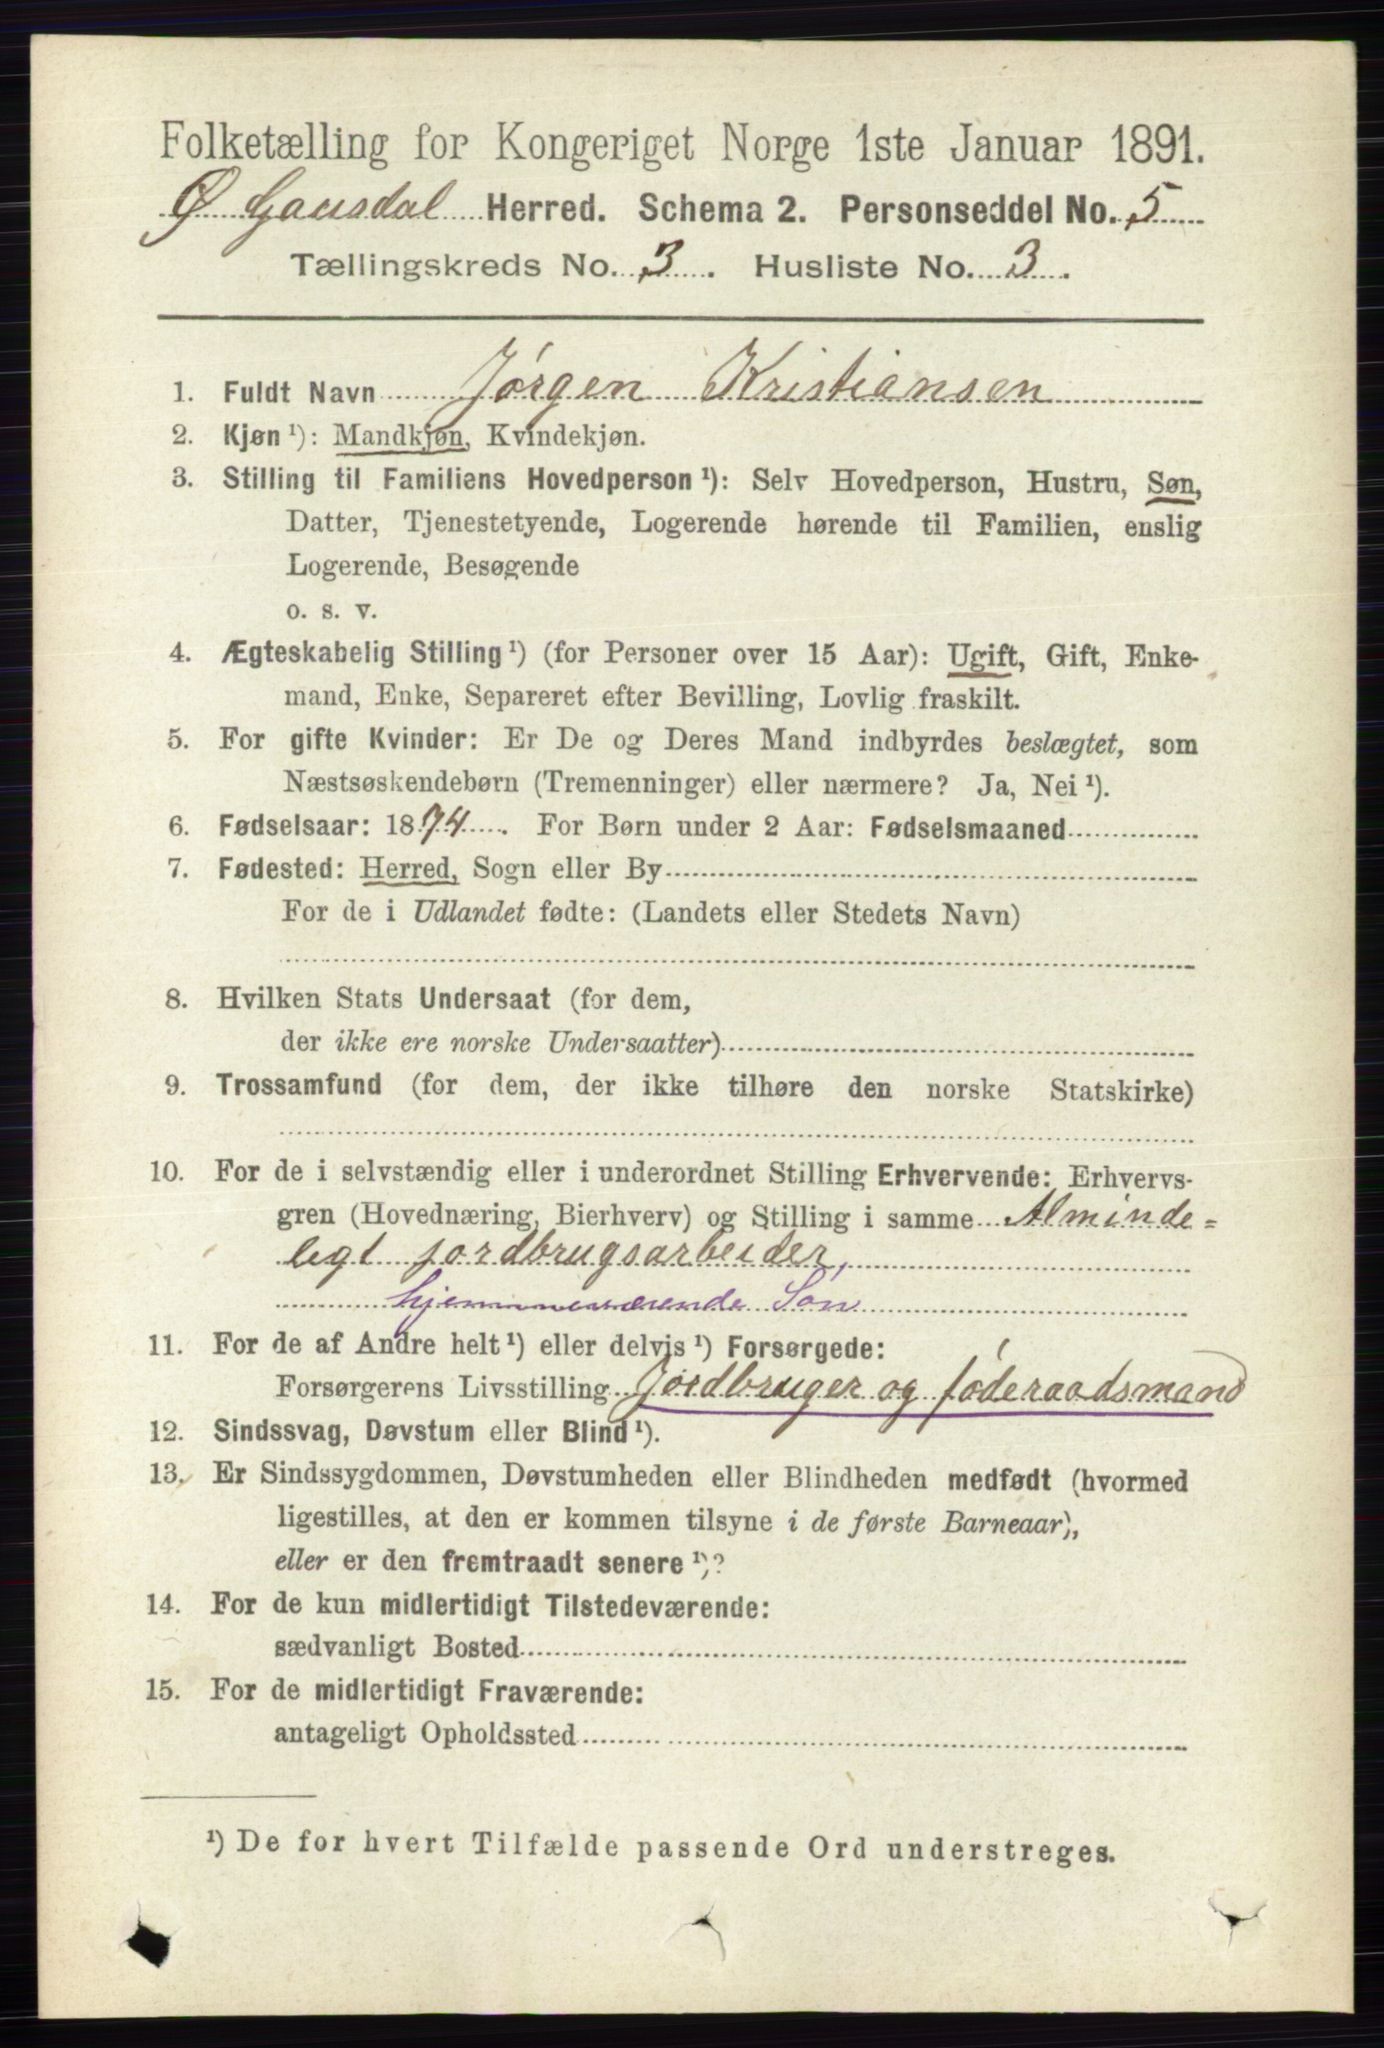 Folketælling for Kongeriget Norge 1ste Januar 1891.
Ø Gausdal Herred. Schema 2. Personseddel No. 5
Tællingskreds No. 3. Husliste No. 3.
1. Fuldt Navn Jørgen Kristiansen
2. Kjøn ¹): Mandkjøn, Kvindekjøn.
3. Stilling til Familiens Hovedperson ¹): Selv Hovedperson, Hustru, Søn,
Datter, Tjenestetyende, Logerende hørende til Familien, enslig
Logerende, Besøgende
o. s. v.
4. Ægteskabelig Stilling ¹) (for Personer over 15 Aar): Ugift, Gift, Enke-
mand, Enke, Separeret efter Bevilling, Lovlig fraskilt.
5. For gifte Kvinder: Er De og Deres Mand indbyrdes beslægtet, som
Næstsøskendebørn (Tremenninger) eller nærmere? Ja, Nei ¹).
6. Fødselsaar: 1874. For Børn under 2 Aar: Fødselsmaaned
7. Fødested: Herred, Sogn eller By
For de i Udlandet fødte: (Landets eller Stedets Navn)
8. Hvilken Stats Undersaat (for dem,
der ikke ere norske Undersaatter)
9. Trossamfund (for dem, der ikke tilhøre den norske Statskirke)
10. For de i selvstændig eller i underordnet Stilling Erhvervende: Erhvervs-
gren (Hovednæring, Bierhverv) og Stilling i samme Alminde=
legt jordbrugsarbeider,
hjemmeværende Søn
11. For de af Andre helt ¹) eller delvis ¹) Forsørgede:
Forsørgerens Livsstilling Jordbruger og føderaadsmand
12. Sindssvag, Døvstum eller Blind ¹).
13. Er Sindssygdommen, Døvstumheden eller Blindheden medfødt (hvormed
ligestilles, at den er kommen tilsyne i de første Barneaar),
eller er den fremtraadt senere ¹)?
14. For de kun midlertidigt Tilstedeværende:
sædvanligt Bosted
15. For de midlertidigt Fraværende:
antageligt Opholdssted
¹) De for hvert Tilfælde passende Ord understreges.